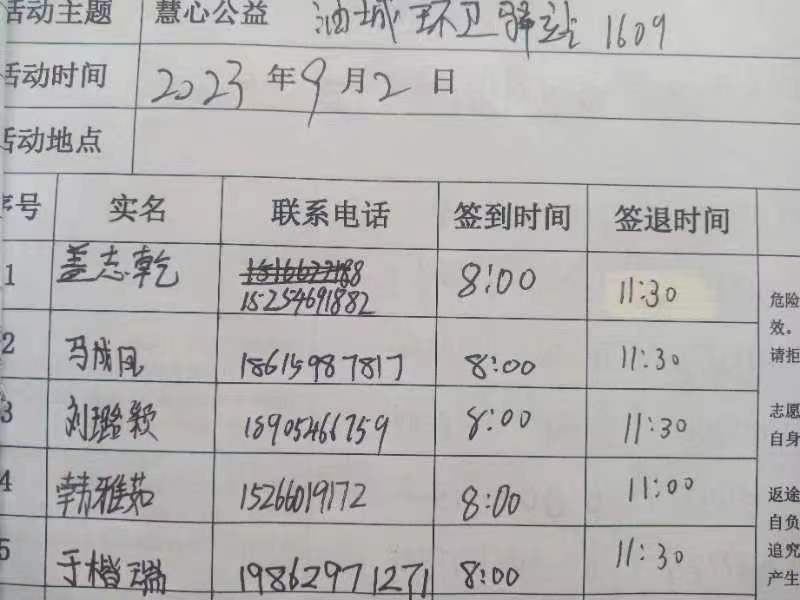 活动主题 慧心公益 油城环卫驿站 1609
活动时间 2023年9月2日
活动地点
序号 实名 联系电话 签到时间 签退时间
1 盖志乾 15254691882 8:00 11:30
2 马成凤 18615987817 8:00 11:30
3 刘璐颖 15905466759 8:00 11:30
4 韩雅茹 15266019172 8:00 11:00
5 于楷瑞 19862971271 8:00 11:30
危险
效。
请拒
志愿
自身
返途
自负
追究
产生